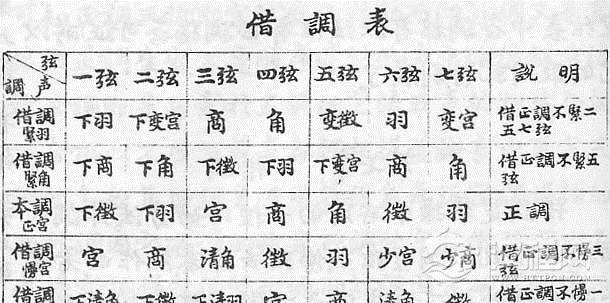 借調表
弦
聲調 一弦 二弦 三弦 四弦 五弦 六弦 七弦 說明
借調緊羽 下羽 下变宮 商 角 变徵 羽 变宮 借正調不緊二五七弦
借調緊角 下商 下角 下徵 下羽 下变宮 商 角 借正調不緊五弦
本調正宮 下徵 下羽 宮 商 角 徵 羽 正調
借調慢宮 宮 商 清角 徵 羽 少宮 少商 借正調不慢三弦
借調 下清角 下徵 下清羽 宮 商 清角 徵 借正調不慢一